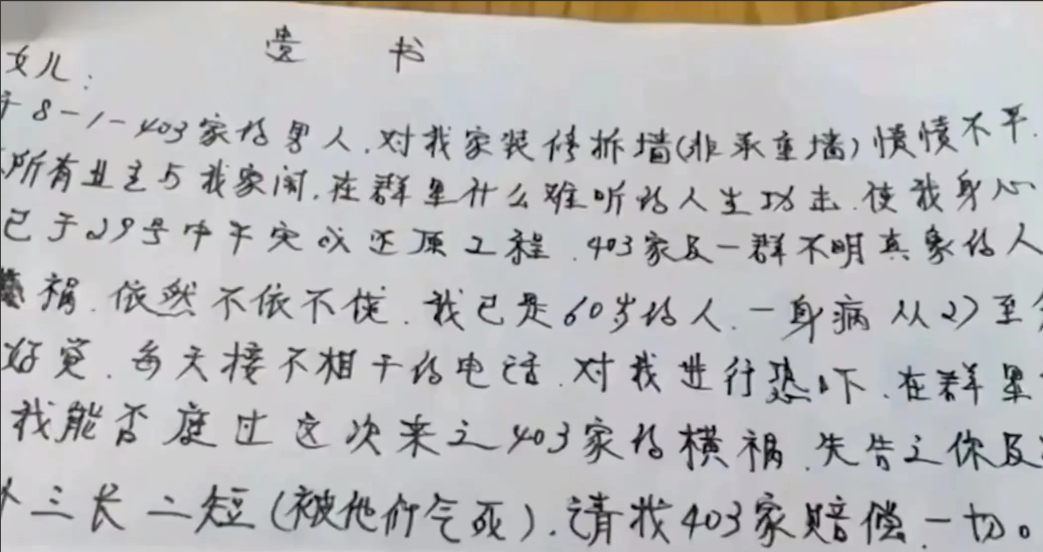 遗 书
女儿:
于8-1-403家的男人,对我家装修拆墙(非承重墙)愤愤不平.
所有业主与我家闹,在群里什么难听的人生功击.使我身心
已于29号中午完成还原工程.403家及一群不明真象的人
祸.依然不依不饶.我已是60岁的人.一身病从27至
好觉.每天接不相干的电话.对我进行恐吓.在群里
我能否度过这次来之403家的横祸.先告之你及
三长二短(被他们气死).请找403家赔偿一切。